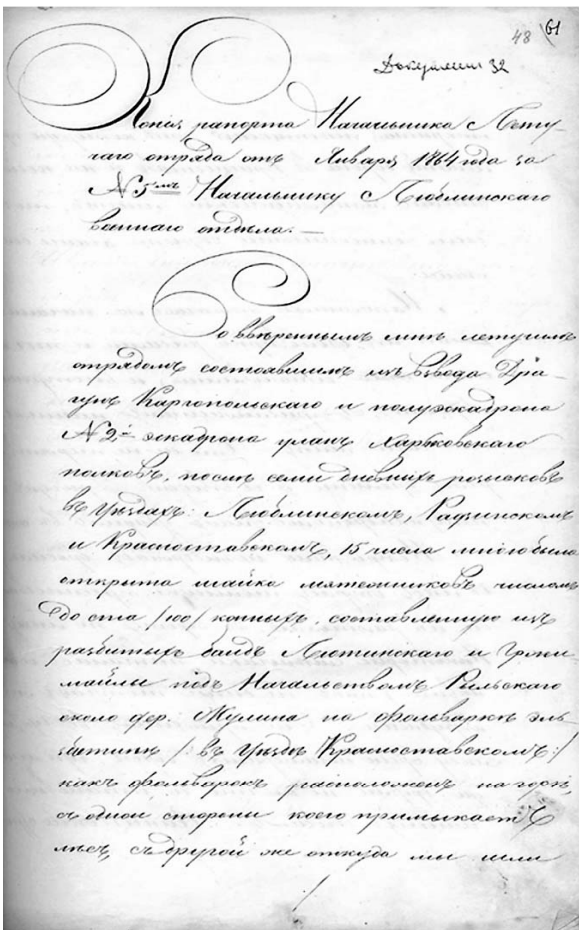 48 61
Документ 32
Копія рапорта Начальника Лету-
чаго отряда отъ Января 1864 года за
№ 5мъ Начальнику Люблинскаго
воннаго отдѣла. —
Со ввѣреннымъ мнѣ летучимъ
отрядомъ состоявшимъ изъ взвода Дра-
гунъ Каргопольскаго и полуэскадрона
№ 2го эскадрона уланъ Харьковскаго
полковъ, послѣ семи дневныхъ розысковъ
въ Уѣздахъ: Люблинскомъ, Радинскомъ
и Красноставскомъ, 15 числа мною была
открыта шайка мятежниковъ числомъ
до ста /100/ конныхъ, составленную изъ
разбитыхъ бандъ Лютинскаго и Гржи-
майлы подъ Начальствомъ Рыльскаго
около дер: Жулина на фольваркѣ
/: въ Уѣздѣ Красноставскомъ :/
какъ фольваркъ расположенъ на
съ одной стороны коего примыкаетъ
лѣсъ, съ другой же откуда мы шли